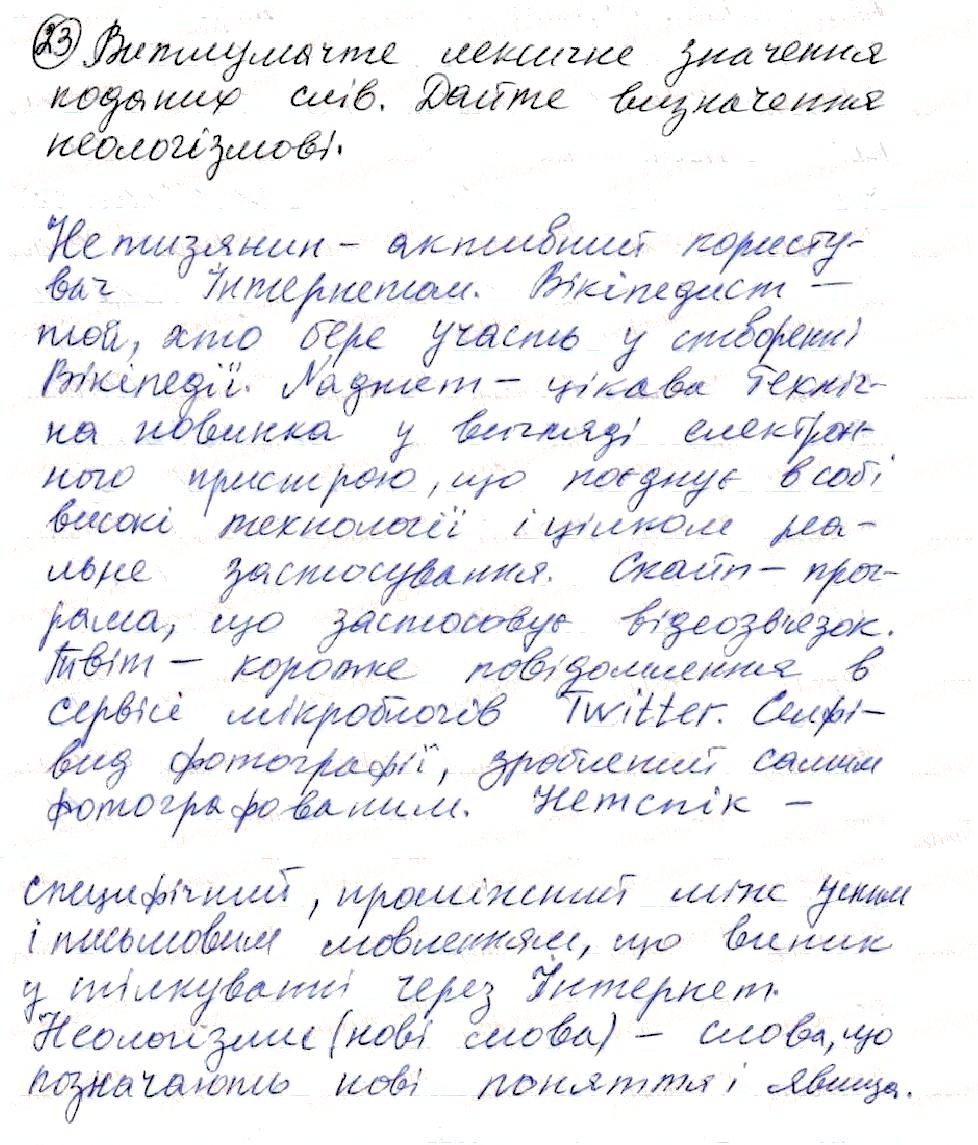 23 Витлумачте лексичне значення
поданих слів. Дайте визначення
неологізмові.
Нетизянин – активний користу-
вач Інтернетом. Вікіпедист –
той, хто бере участь у створенні
Вікіпедії. Ґаджет – цікава техніч-
на новинка у вигляді електрон-
ного пристрою, що поєднує в собі
високі технології і цілком реа-
льне застосування. Скайп – прог-
рама, що застосовує відеозв'язок.
Твіт – коротке повідомлення в
сервісі мікроблогів Twitter. Селфі –
вид фотографії, зроблений самим
фотографованим. Нетспік –
специфічний, проміжний між усним
і письмовим мовленням, що виник
у спілкуванні через Інтернет.
Неологізми (нові слова) – слова, що
позначають нові поняття і явища.